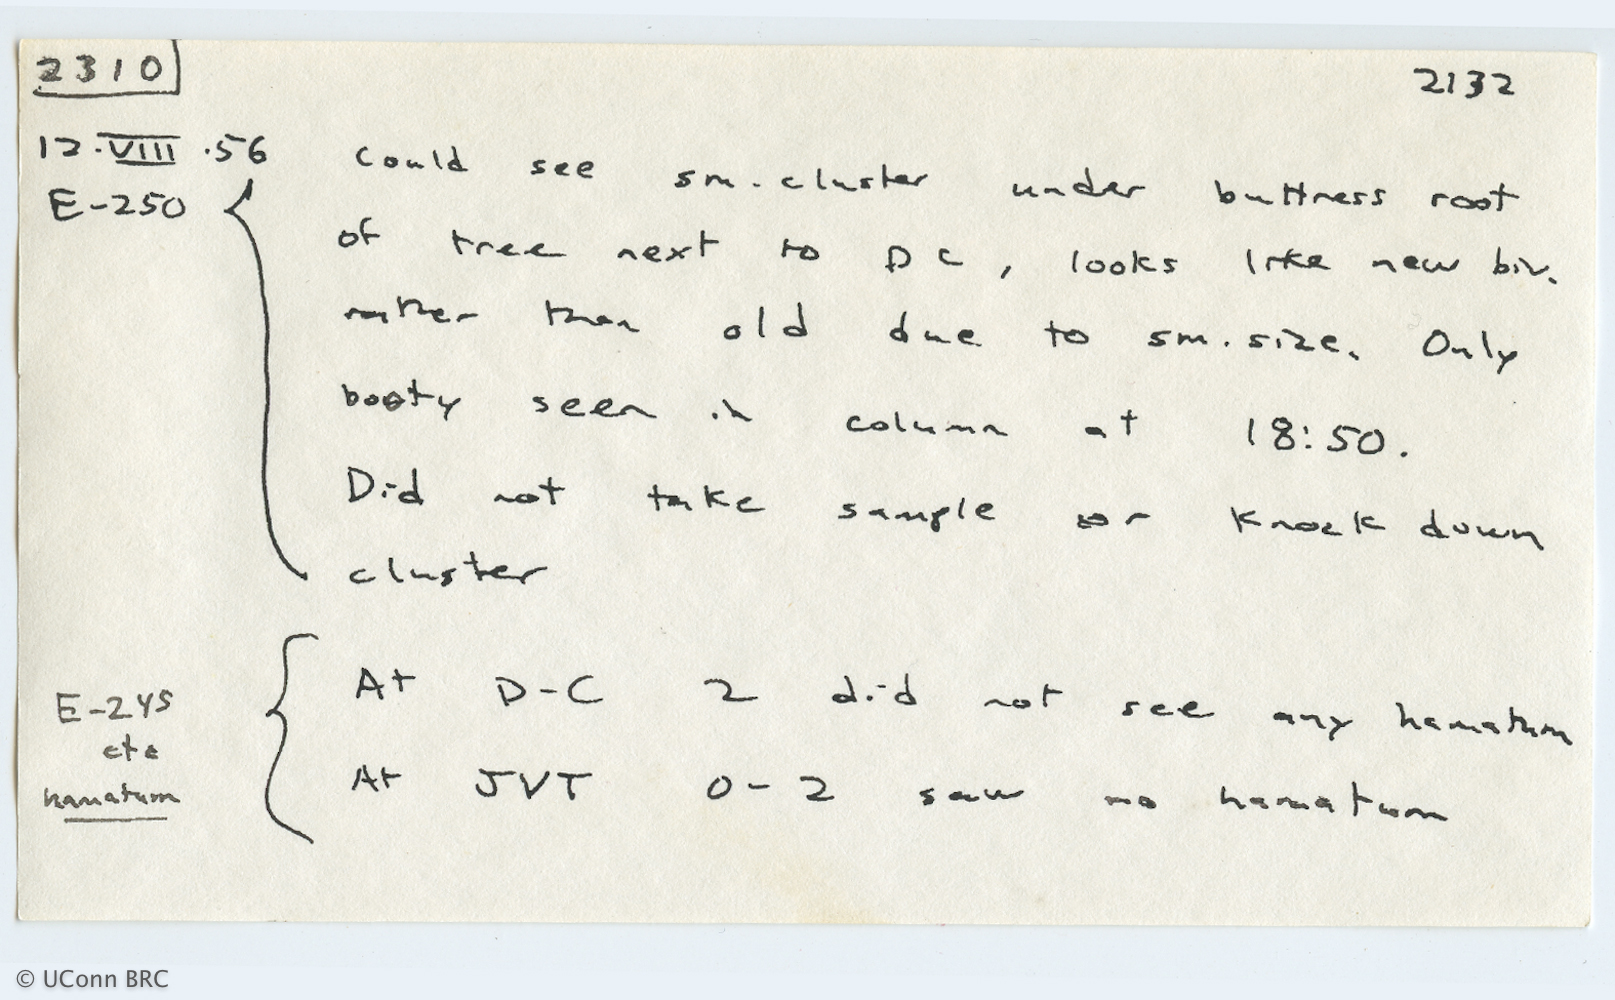 2310
2132
12.VIII.56
E-250
Could see sm. cluster under buttress root
of tree next to DC, looks like new biv.
rather than old due to sm. size. Only
booty seen in column at 18:50.
Did not take sample or knock down
cluster
E-245
etc
hamatum
At D-C 2 did not see any hamatum
At JVT 0-2 saw no hamatum
© UConn BRC